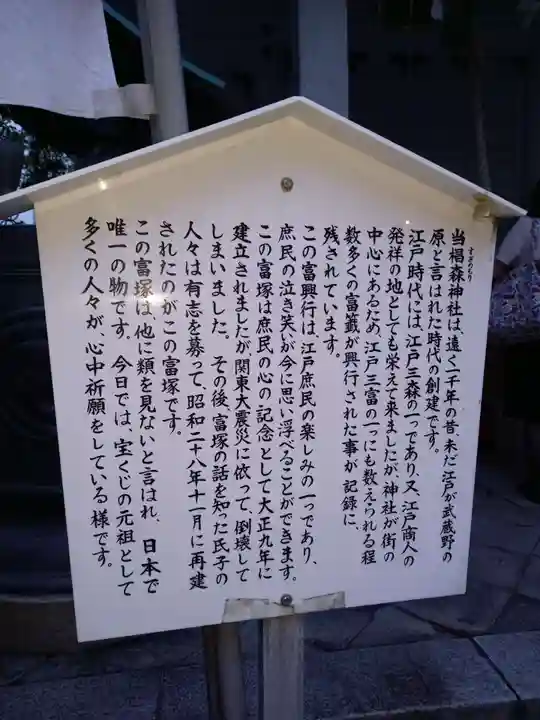 すぎのもり
当椙森神社は、遠く一千年の昔、未だ江戸が武蔵野の
原と言はれた時代の創建です。
江戸時代には、江戸三森の一つであり、又、江戸商人の
発祥の地としても栄えて来ましたが、神社が街の
中心にあるため、江戸三富の一つにも数えられる程
数多くの富籤が興行された事が記録に、
残されています。
この富興行は、江戸庶民の楽しみの一つであり、
庶民の泣き笑いが今に思い浮べることができます。
この富塚は庶民の心の記念として大正九年に
建立されましたが、関東大震災に依って、倒壊して
しまいました。その後、富塚の話を知った氏子の
人々は有志を募って、昭和二十八年十一月に再建
されたのがこの富塚です。
この富塚は、他に類を見ないと言はれ、日本で
唯一の物です。今日では、宝くじの元祖として
多くの人々が、心中祈願をしている様です。